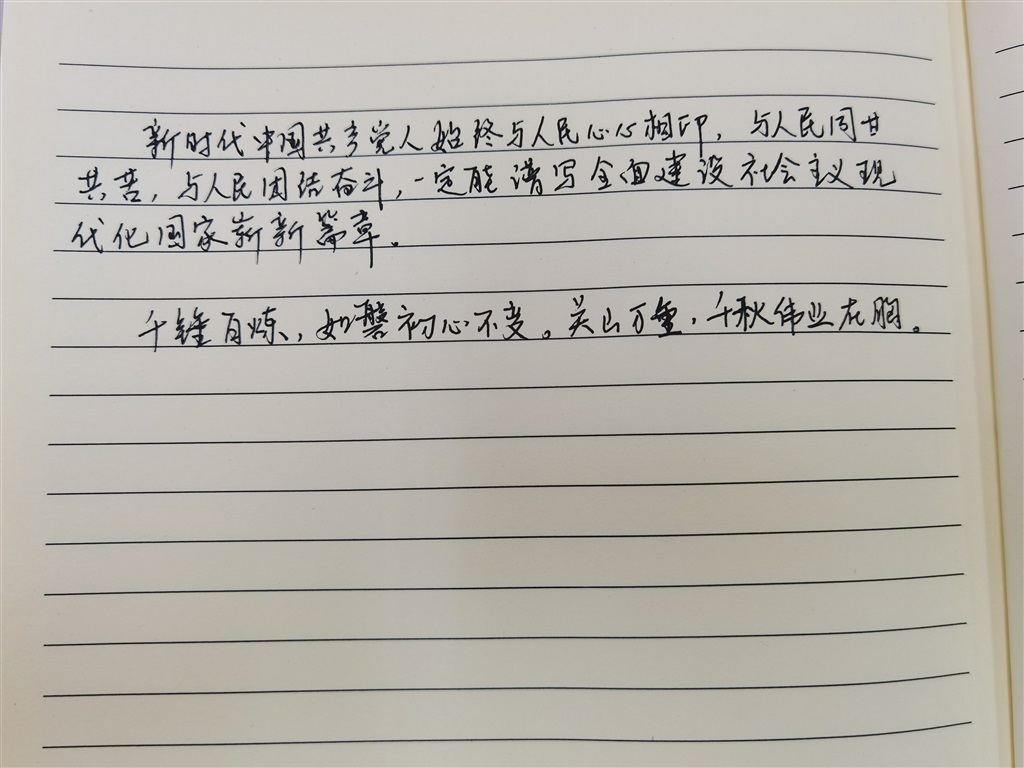 新时代中国共产党人始终与人民心心相印，与人民同甘
共苦，与人民团结奋斗，一定能谱写全面建设社会主义现
代化国家崭新篇章。
千锤百炼，如磐初心不变。关山万重，千秋伟业在胸。